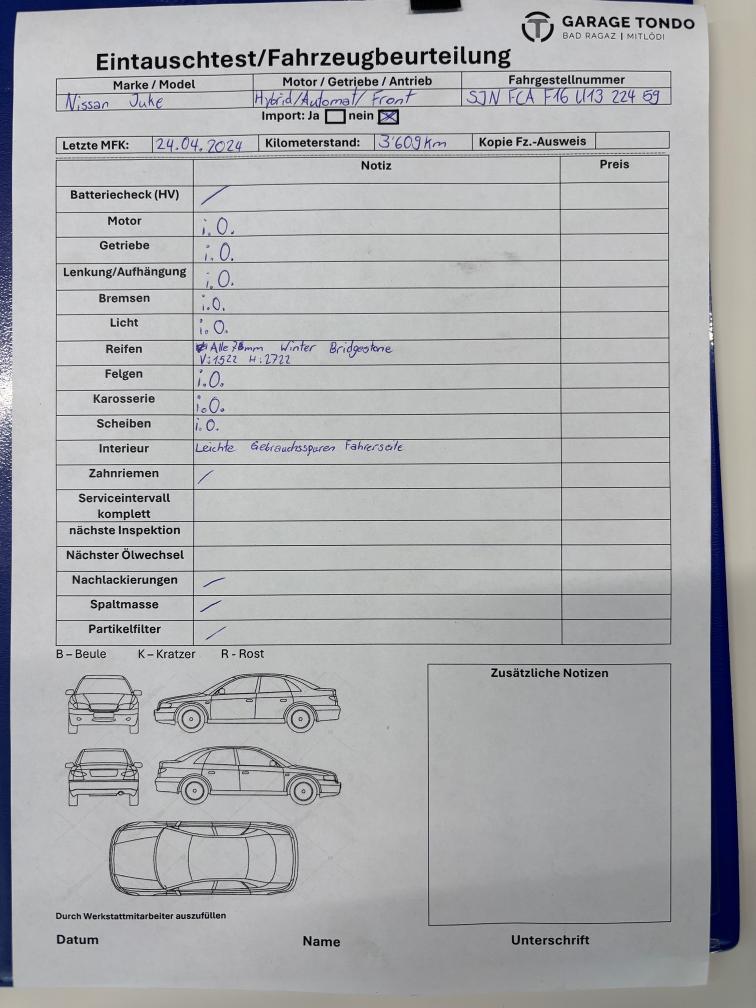 GARAGE TONDO
BAD RAGAZ | MITLÖDI
Eintauschtest/Fahrzeugbeurteilung
Marke / Model Motor / Getriebe / Antrieb Fahrgestellnummer
Nissan Juke Hybrid/Automat/Front SJN FCA F16 U13 224 59
Import: Ja nein
Letzte MFK: 24.04.2024 Kilometerstand: 3'609 km Kopie Fz.-Ausweis
Notiz Preis
Batteriecheck (HV) /
Motor i.O.
Getriebe i.O.
Lenkung/Aufhängung i.O.
Bremsen i.O.
Licht i.O.
Reifen Alle Winter Bridgestone
V:1522 H:2722
Felgen i.O.
Karosserie i.O.
Scheiben i.O.
Interieur Leichte Gebrauchsspuren Fahrerseite
Zahnriemen /
Serviceintervall
komplett
nächste Inspektion
Nächster Ölwechsel
Nachlackierungen /
Spaltmasse /
Partikelfilter /
B – Beule K – Kratzer R - Rost
Zusätzliche Notizen
Durch Werkstattmitarbeiter auszufüllen
Datum Name Unterschrift